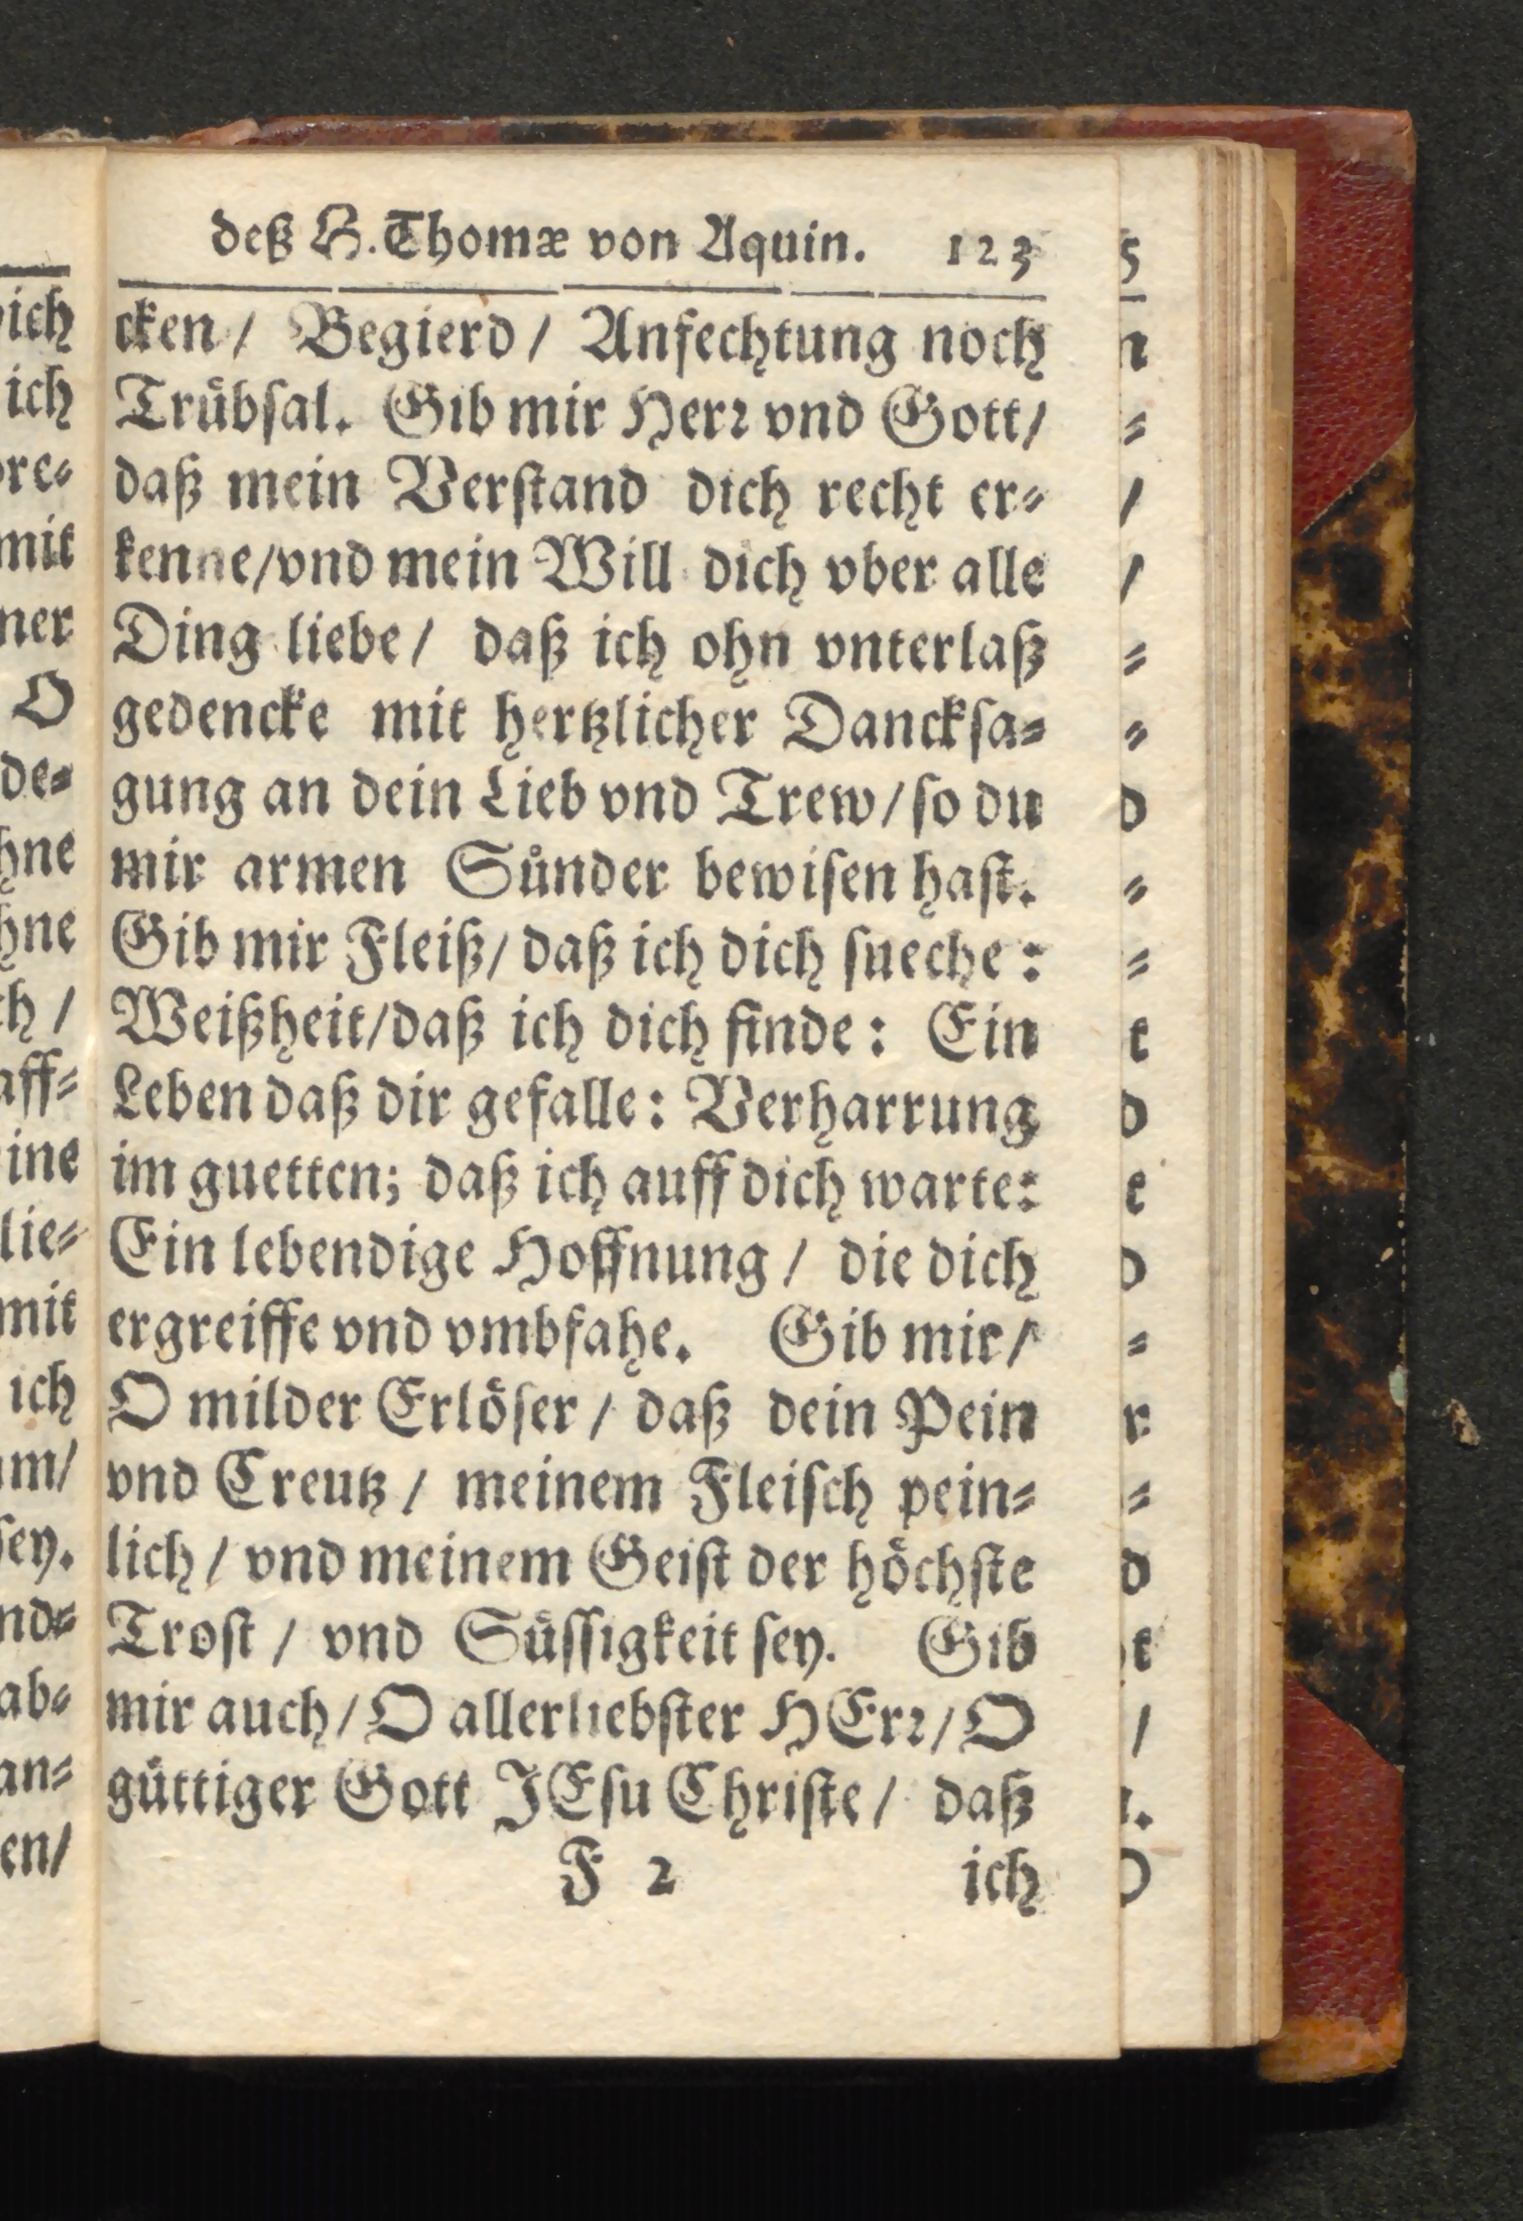 deß H. Thomæ von Aquin. 123
cken / Begierd / Anfechtung noch
Trübſal. Gib mir Herꝛ vnd Gott /
daß mein Verſtand dich recht er⸗
kenne / vnd mein Will dich vber alle
Ding liebe / daß ich ohn vnterlaß
gedencke mit hertzlicher Danckſa⸗
gung an dein Lieb vnd Trew / ſo du
mir armen Sünder bewiſen haſt.
Gib mir Fleiß / daß ich dich ſueche :
Weißheit / daß ich dich finde : Ein
Leben daß dir gefalle : Verharrung
im guetten; daß ich auff dich warte:
Ein lebendige Hoffnung / die dich
ergreiffe vnd vmbfahe. Gib mir /
O milder Erlöſer / daß dein Pein
vnd Creutz / meinem Fleiſch pein⸗
lich / vnd meinem Geiſt der höchſte
Troſt / vnd Süſſigkeit ſey. Gib
mir auch / O allerliebſter HErꝛ / O
güttiger Gott JEſu Chriſte / daß
F 2 ich